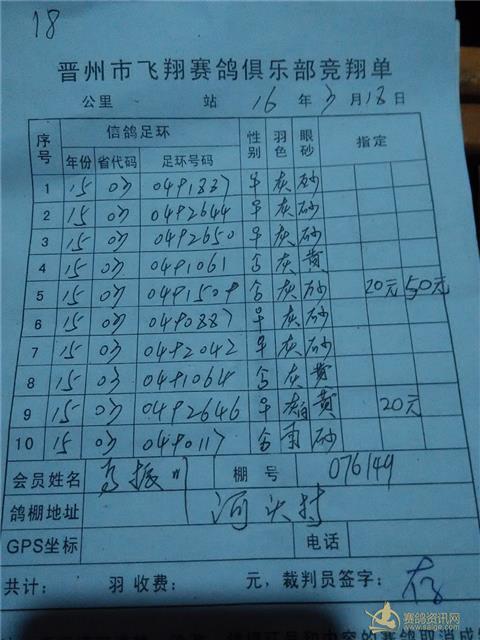 18
晋州市飞翔赛鸽俱乐部竞翔单
公里 站 16 年 3 月 18 日
序号 信鸽足环 性别 羽色 眼砂 指定
年份 省代码 足环号码
1 15 03 0491337 早 灰 砂
2 15 03 0492644 早 灰 砂
3 15 03 0492650 早 灰 砂
4 15 03 0491061 合 灰 黄
5 15 03 0491509 合 灰 砂 20元 50元
6 15 03 0490887 早 灰 砂
7 15 03 0492042 早 灰 砂
8 15 03 0491064 合 灰 黄
9 15 03 0492646 早 黄 20元
10 15 03 0490117 合 砂
会员姓名 高振川 棚号 076149
鸽棚地址 河头村
GPS坐标 电话
共计： 羽 收费： 元，裁判员签字：
赛鸽资讯网
www.saige.com